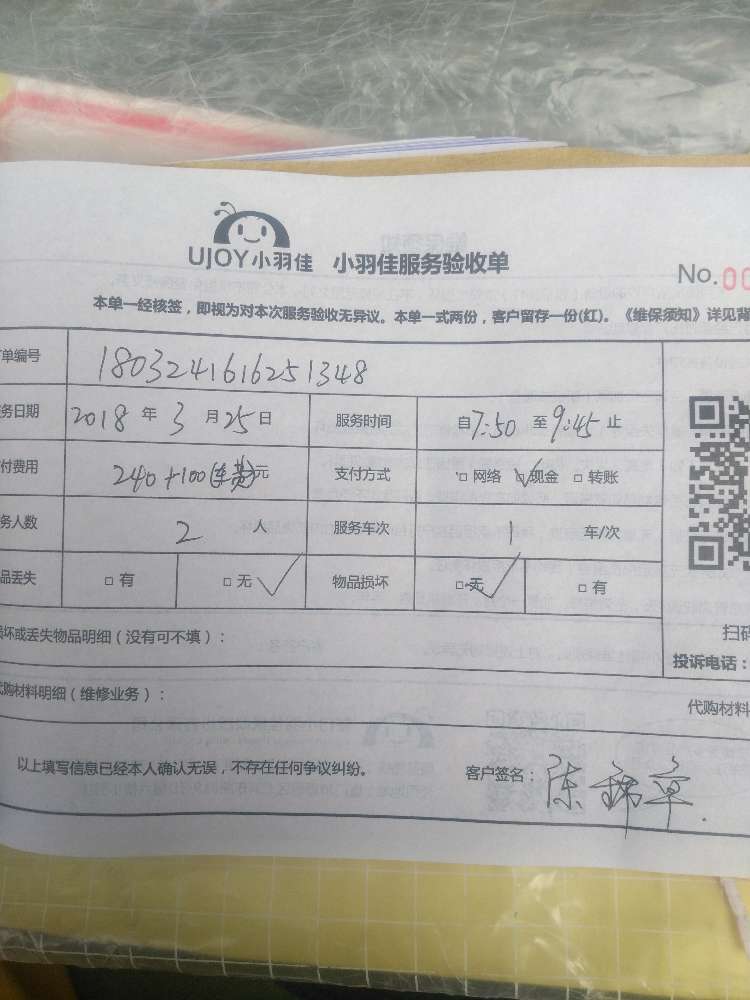 UJOY小羽佳 小羽佳服务验收单
No.00
本单一经核签，即视为对本次服务验收无异议。本单一式两份，客户留存一份(红)。《维保须知》详见背
单编号 1803241616251348
务日期 2018 年 3 月 25 日 服务时间 自 7:50 至 9:45 止
付费用 240+100(车费)元 支付方式 □ 网络 □ 现金 □ 转账
务人数 2 人 服务车次 1 车/次
品丢失 □ 有 □ 无 物品损坏 □ 无 □ 有
损坏或丢失物品明细（没有可不填）：
扫码
投诉电话：
代购材料明细（维修业务）：
代购材料
以上填写信息已经本人确认无误，不存在任何争议纠纷。 客户签名：陈锦章